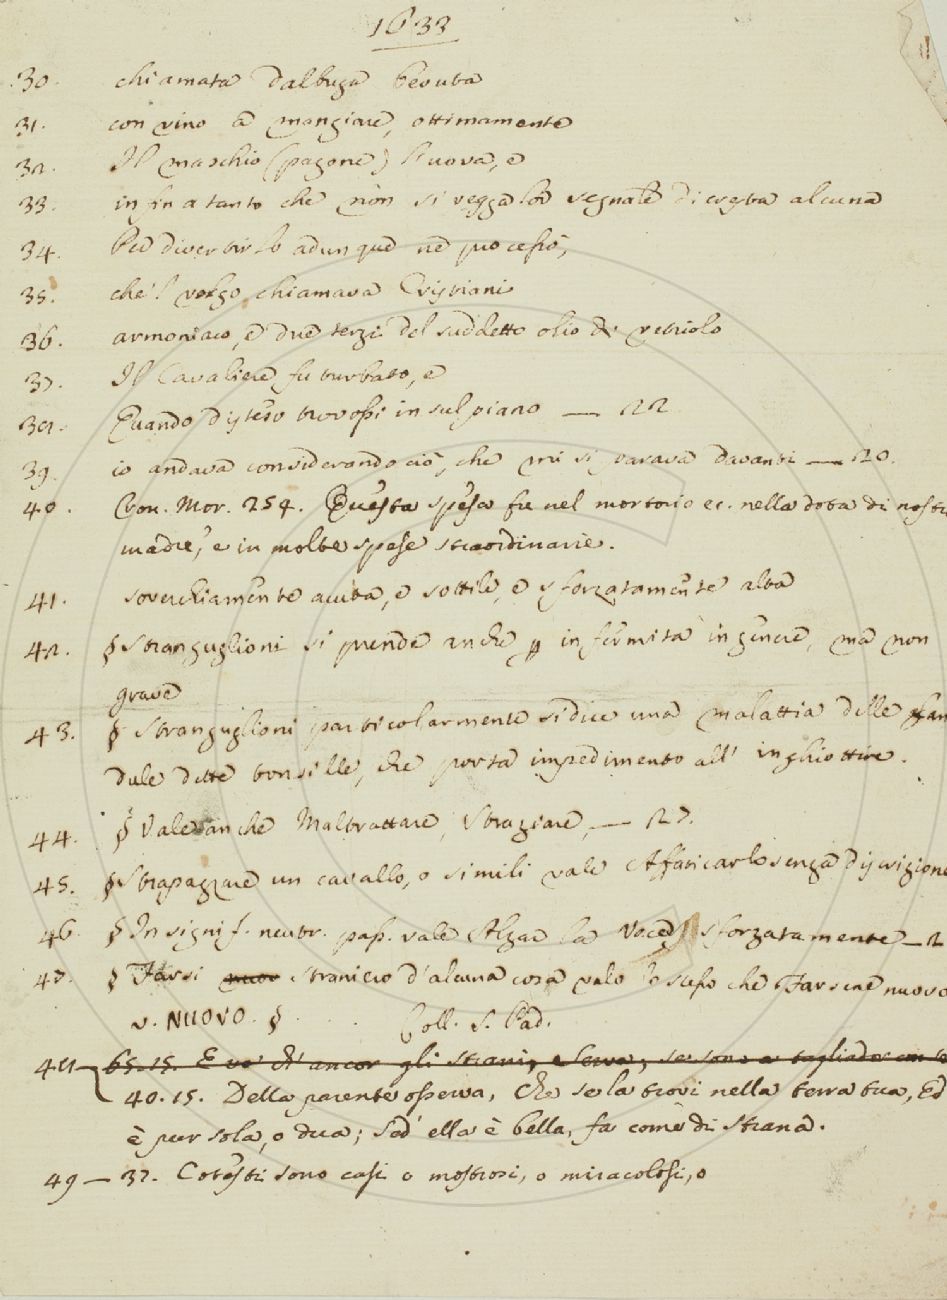 1633
30. chiamata Dalbuga bevuta
31. con vino a mangiare, ottimamente
32. Il maschio (pagone) l'uova, e
33. infin a tanto che non si vegga lor segnale di cresta alcuna
34. Per divertirlo adunque ne processi,
35. che'l volgo chiamava Cristiani
36. armoniaco, e due terzi del suddetto olio di vetriolo
37. Il Cavaliere fu turbato, e
38. Quando disteso trovossi in sul piano — 22
39. io andava considerando ciò, che mi si parava davanti — 20.
40. Cron. Mor. 254. Questa spesa fu nel mortorio ec. nella dota di nostra
madre, e in molte spese straordinarie.
41. soverchiamente acuta, e sottile, e sforzatamente alta
42. § Stranguglioni si prende anche p infermità in genere, ma non
grave
43. § Stranguglioni particolarmente si dice una malattia delle glan
dule dette tonsille, che porta impedimento all' inghiottire.
44. § Vale anche Maltrattare, Straziare, — 27.
45. § Strapazzare un cavallo, o simili vale Affaticarlo senza discrizione
46. § In signif. neutr. pass. vale Alzar la voce sforzatamente — 2
47. § Farsi straniero d'alcuna cosa vale lo stesso che Farsene nuovo
v. NUOVO. § . . . Coll. S. Pad.
48 — 65. 15. E vo' ch' ancor gli strani, e serva; se sono a tagliador con
40. 15. Della parente osserva, Che se la trovi nella terra tua, Ed
è pur sola, o dua; S'ed ella è bella, fa come di strana.
49 — 37. Cotesti sono casi o mostrosi, o miracolosi, o